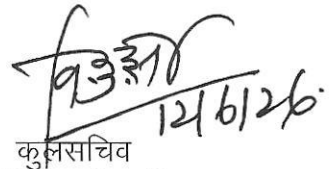 12/6/26
कुलसचिव